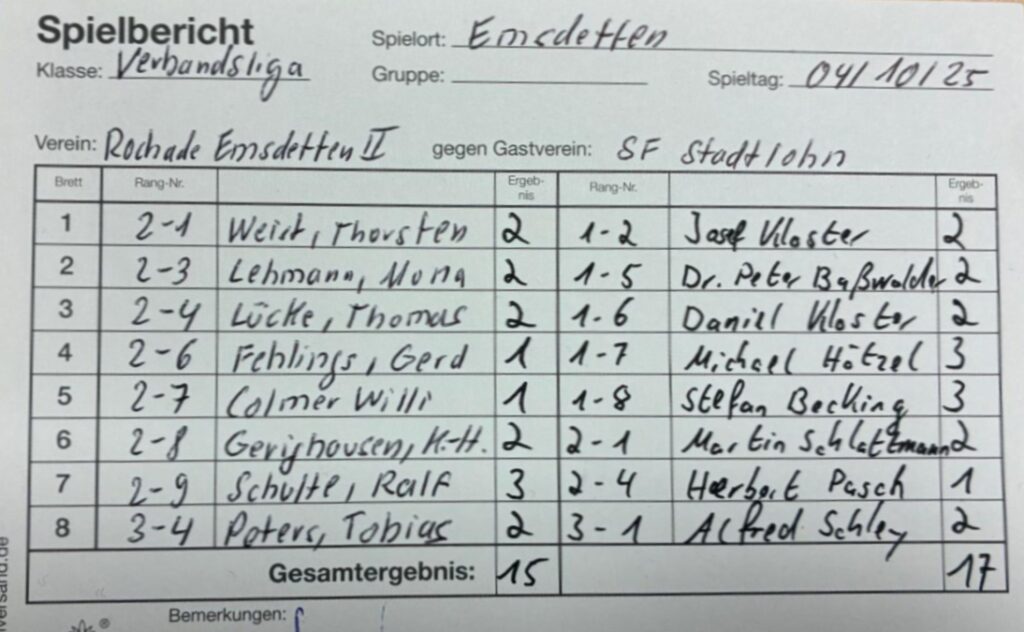 Spielbericht
Spielort: Emsdetten
Klasse: Verbandsliga Gruppe: Spieltag: 04/10/25
Verein: Rochade Emsdetten II gegen Gastverein: SF Stadtlohn
Brett Rang-Nr. Ergeb-nis Rang-Nr. Ergeb-nis
1 2-1 Weist, Thorsten 2 1-2 Josef Kloster 2
2 2-3 Lehmann, Mona 2 1-5 Dr. Peter Baßwalder 2
3 2-4 Lücke, Thomas 2 1-6 Daniel Kloster 2
4 2-6 Fehlings, Gerd 1 1-7 Michael Hötzel 3
5 2-7 Colmer Willi 1 1-8 Stefan Becking 3
6 2-8 Gerighausen, K.-H. 2 2-1 Martin Schlattmann 2
7 2-9 Schulte, Ralf 3 2-4 Herbert Pasch 1
8 3-4 Peters, Tobias 2 3-1 Alfred Schley 2
Gesamtergebnis: 15 17
Bemerkungen:
versand.de